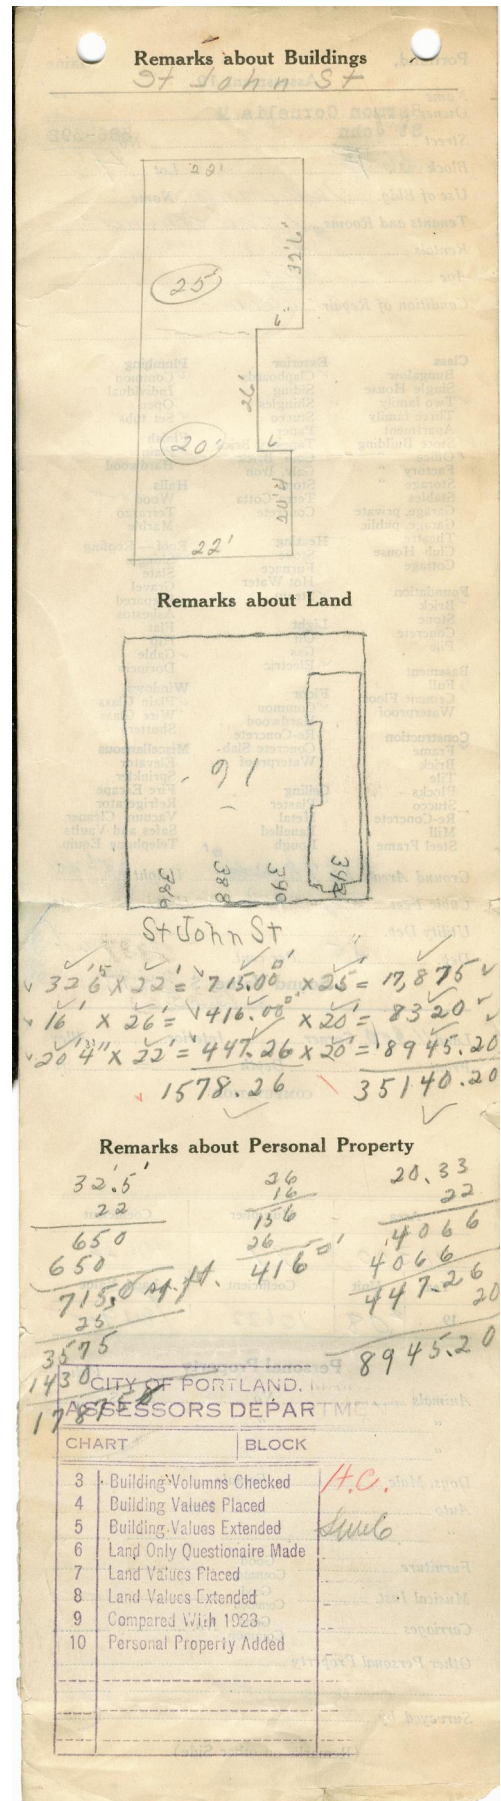 Remarks about Buildings
St John St
22'
32'6"
25'
6'
26'
6'
20'
20'4"
22'
Remarks about Land
91
386 388 390 392
St John St
32'6" x 22' = 715.00 x 25' = 17,875
16' x 26' = 416.00 x 20' = 8320
20'4" x 22' = 447.26 x 20' = 8945.20
1578.26 35140.20
Remarks about Personal Property
32.5' 26 20.33
22 16 22
650 156 4066
650 26 4066
715,0 sq. ft. 416 447.26
25 20
3575 8945.20
1430
CITY OF PORTLAND.
ASSESSORS DEPARTME
CHART BLOCK
3 Building Volumns Checked H.C.
4 Building Values Placed
5 Building Values Extended
6 Land Only Questionaire Made
7 Land Values Placed
8 Land Values Extended
9 Compared With 1923
10 Personal Property Added